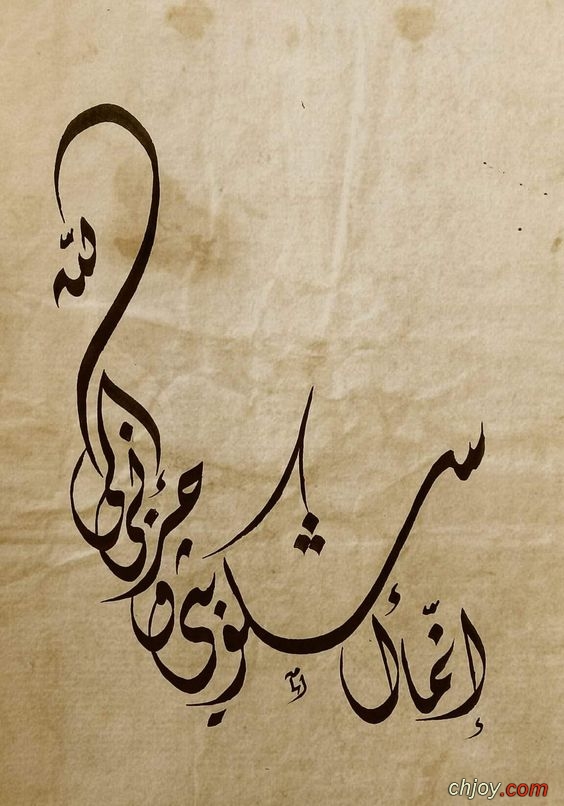 إنّما أشكو بثي وحزني إلى الله
chjoy.com